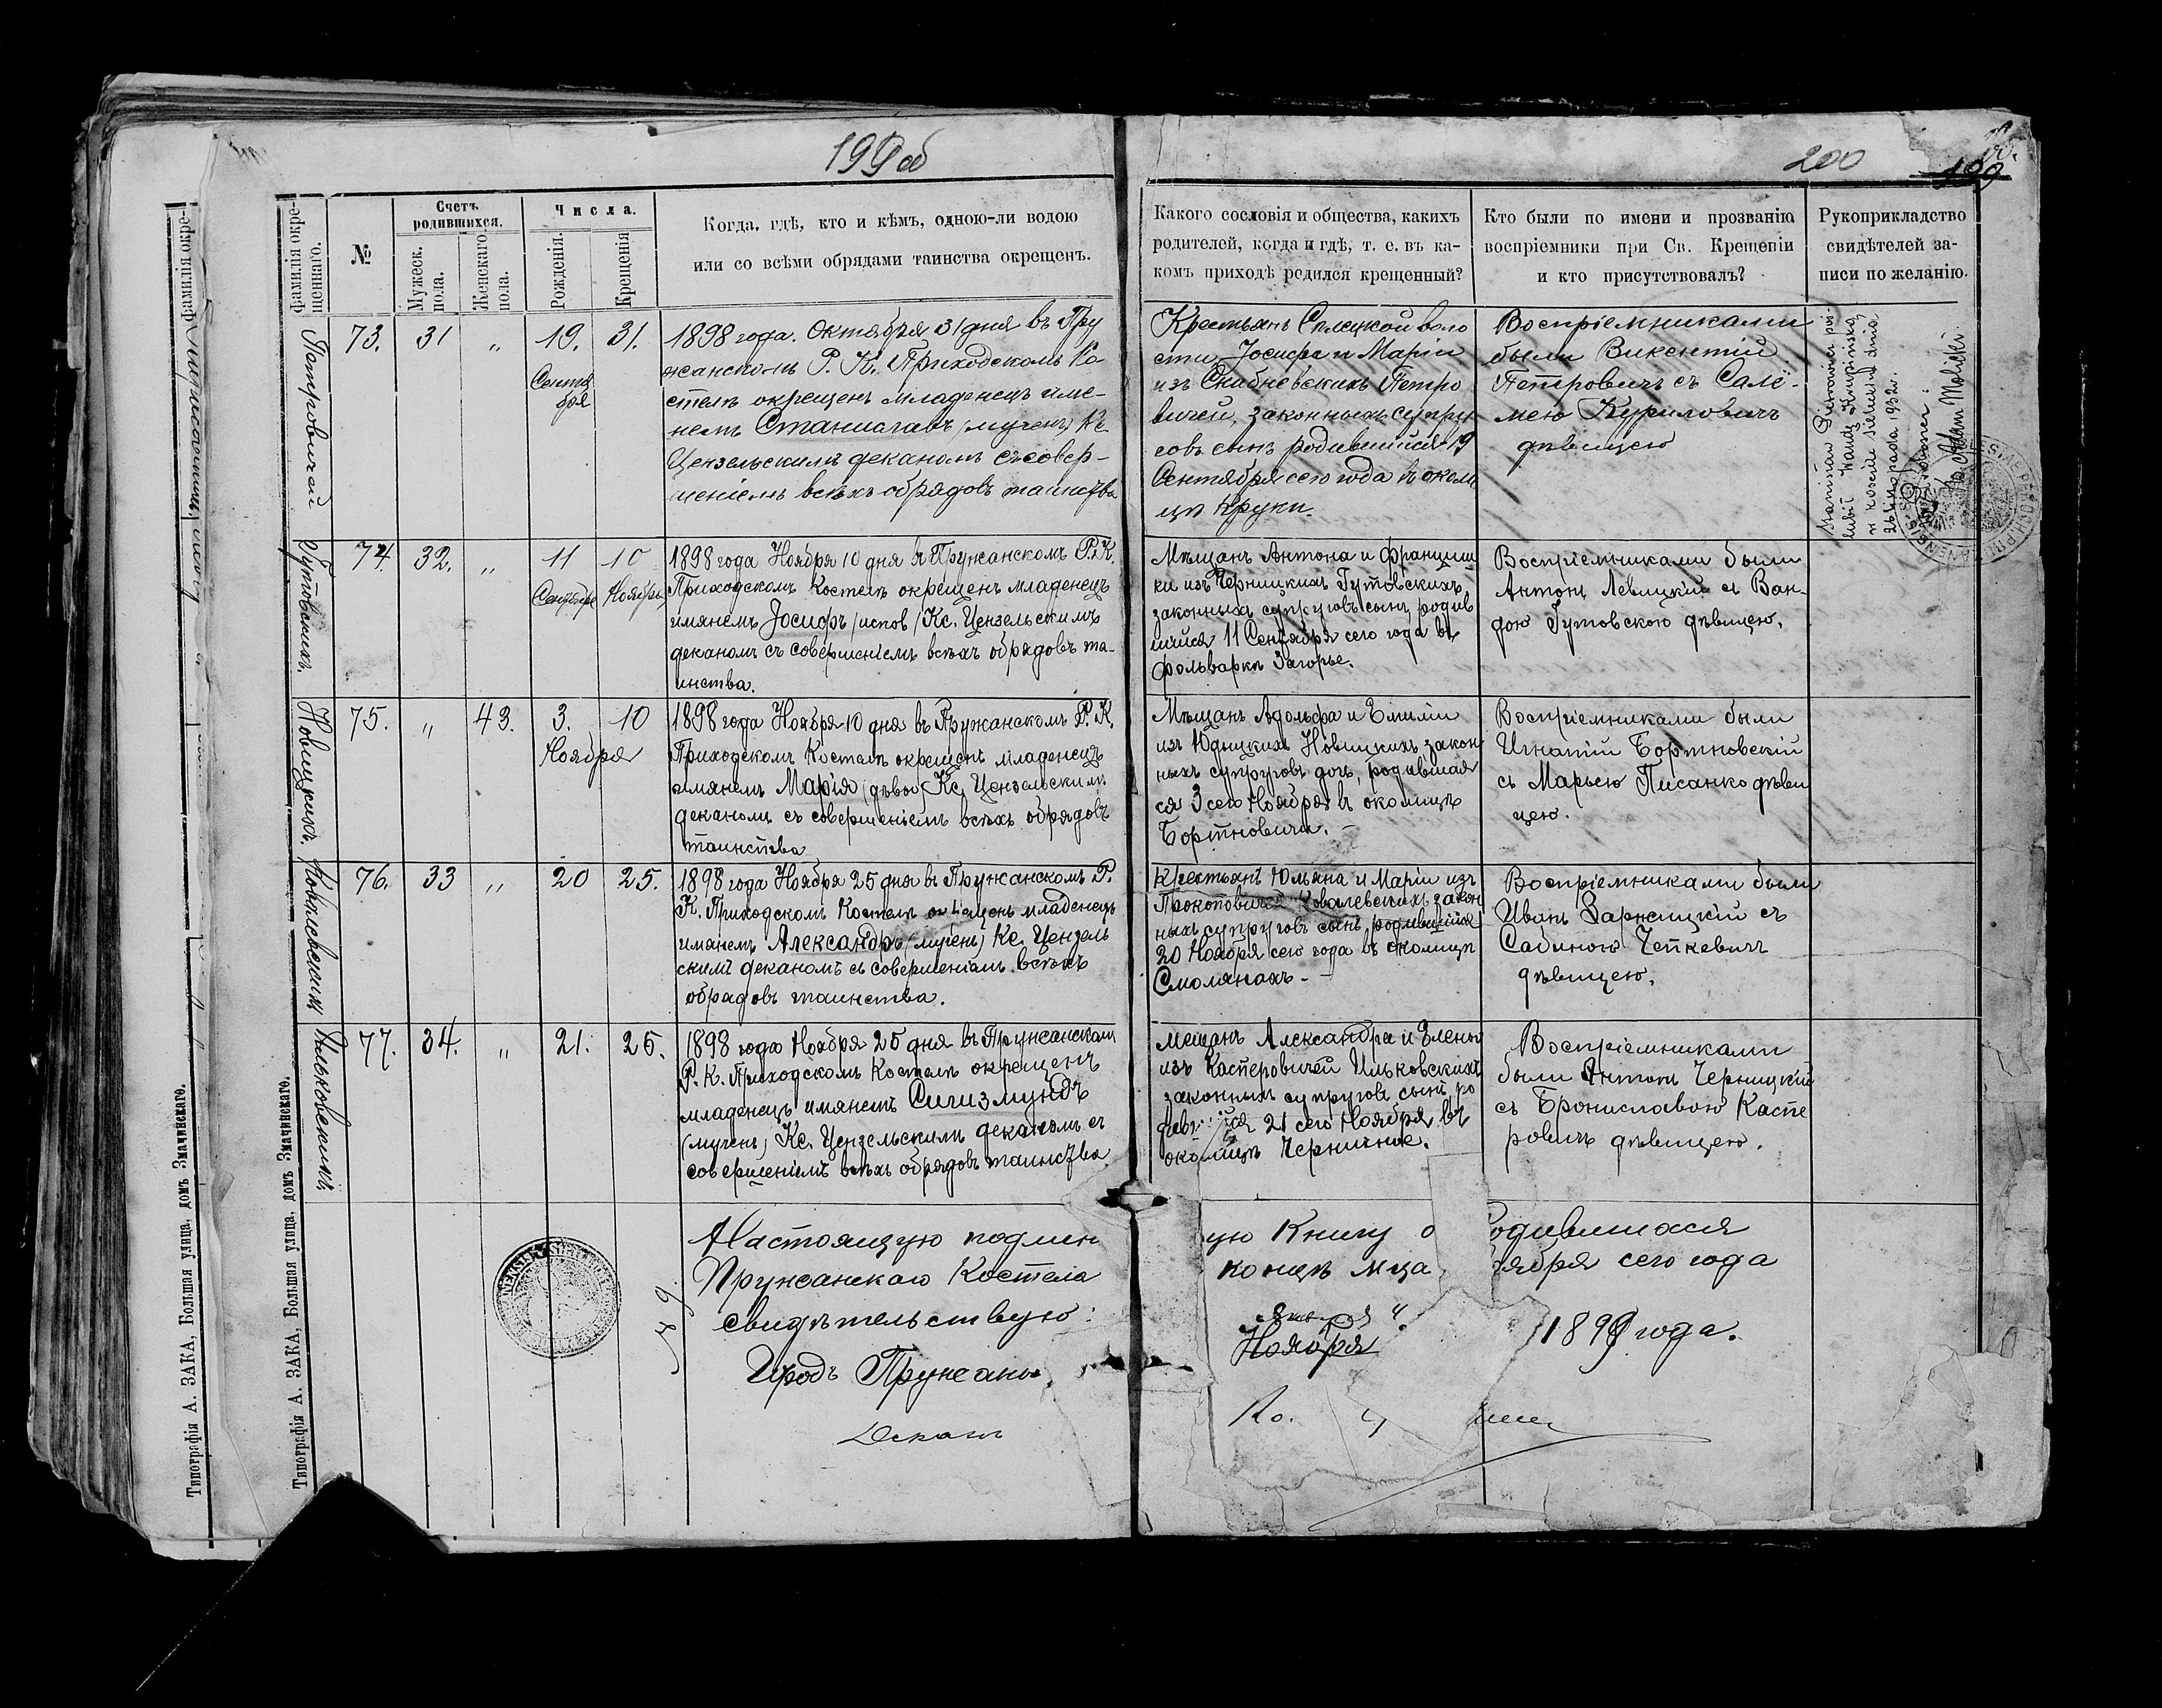 199об
200
199
Фамилія окре-
щеннаго.
№
Счетъ
родившихся.
Мужеск.
пола.
Женскаго
пола.
Числа.
Рожденія.
Крещенія
Когда, гдѣ, кто и кѣмъ, одною-ли водою
или со всѣми обрядами таинства окрещенъ.
Какого сословія и общества, какихъ
родителей, когда и гдѣ, т. е. въ ка-
комъ приходѣ родился крещенный?
Кто были по имени и прозванію
воспріемники при Св. Крещеніи
и кто присутствовалъ?
Рукоприкладство
свидѣтелей за-
писи по желанію.
Петровичей
73.
31
„
19.
Сентя
бря
31.
1898 года. Октября 31 дня въ Пру
жанскомъ Р. К. Приходскомъ Ко-
стелѣ окрещенъ младенецъ име-
немъ Станиславъ (мучен) Кс
Цензельскимъ деканомъ съ совер-
шеніемъ всѣхъ обрядовъ таинства
Крестьянъ Селецкой воло
сти Іосифа и Маріи
изъ Скабневскихъ Петро
вичей, законныхъ супру
говъ сынъ родившійся 19
Сентября сего года въ околи
цѣ Круки.
Воспріемниками
были Викентій
Петровичъ съ Сале-
мею Куриловичъ
дѣвицею
Stanisław Pietrowicz poś-
lubił Wandę Krupińską
w kościele sieleckim dnia
26 listopada 1932 r.
Proboszcz:
Ks. Adam Molicki.
Гутовскихъ.
74.
32.
„
11
Сентября
10
Ноября
1898 года Ноября 10 дня въ Пружанскомъ Р. К.
Приходскомъ Костелѣ окрещенъ младенецъ
имянемъ Іосифъ (испов) Кс. Цензельскимъ
деканомъ съ совершеніемъ всѣхъ обрядовъ та-
инства.
Мѣщанъ Антона и Францишки
изъ Черницкихъ Гутовскихъ
законныхъ супруговъ сынъ, родив
шійся 11 Сентября сего года въ
фольваркѣ Загорье.
Воспріемниками были
Антонъ Левицкій съ Ван-
дою Гутовскою дѣвицею.
Новицкихъ.
75.
„
43.
3.
10
Ноября
1898 года Ноября 10 дня въ Пружанскомъ Р. К.
Приходскомъ Костелѣ окрещенъ младенецъ
имянемъ Марія (дѣвы) Кс. Цензельскимъ
деканомъ съ совершеніемъ всѣхъ обрядовъ
таинства
Мѣщанъ Адольфа и Эмиліи
изъ Юдицкихъ Новицкихъ закон
ныхъ супруговъ дочь, родившая
ся 3 сего Ноября въ околицѣ
Бортновичи.
Воспріемниками были
Игнатій Бортновскій
съ Марьею Писанко дѣви
цею.
Ковалевскихъ
76.
33
„
20
25.
1898 года Ноября 25 дня въ Пружанскомъ Р.
К. Приходскомъ Костелѣ окрещенъ младенецъ
имянемъ Александръ (мучен) Кс. Цензель
скимъ деканомъ съ совершеніемъ всѣхъ
обрядовъ таинства.
Крестьянъ Юльяна и Маріи изъ
Прокоповичей Ковалевскихъ закон
ныхъ супруговъ сынъ, родившійся
20 Ноября сего года въ околицѣ
Смолянахъ.
Воспріемниками были
Иванъ Зарнецкій съ
Сабиною Чепкевичъ
дѣвицею.
Ильковскихъ.
77.
34.
„
21.
25.
1898 года Ноября 25 дня въ Пружанскомъ
Р. К. Приходскомъ Костелѣ окрещенъ
младенецъ имянемъ Сигизмундъ
(мучен) Кс. Цензельскимъ деканомъ съ
совершеніемъ всѣхъ обрядовъ таинства.
Мещанъ Александра и Элены
изъ Касперовичей Ильковскихъ
законныхъ супруговъ сынъ, ро
дившійся 21 сего Ноября въ
околицѣ Черничное.
Воспріемниками
были Антонъ Черницкій
съ Брониславою Каспе
ровичъ дѣвицею.
Настоящую подлин ую Книгу о Родившихся
Пружанскаго Костела конецъ мца Ноября сего года
свидѣтельствую:
Городъ Пружаны. Ноября 1898 года.
Деканъ
Типографія А. ЗАКА, Большая улица, домъ Змачинскаго.
Типографія А. ЗАКА, Большая улица, домъ Змачинскаго.
Фамилія окре-